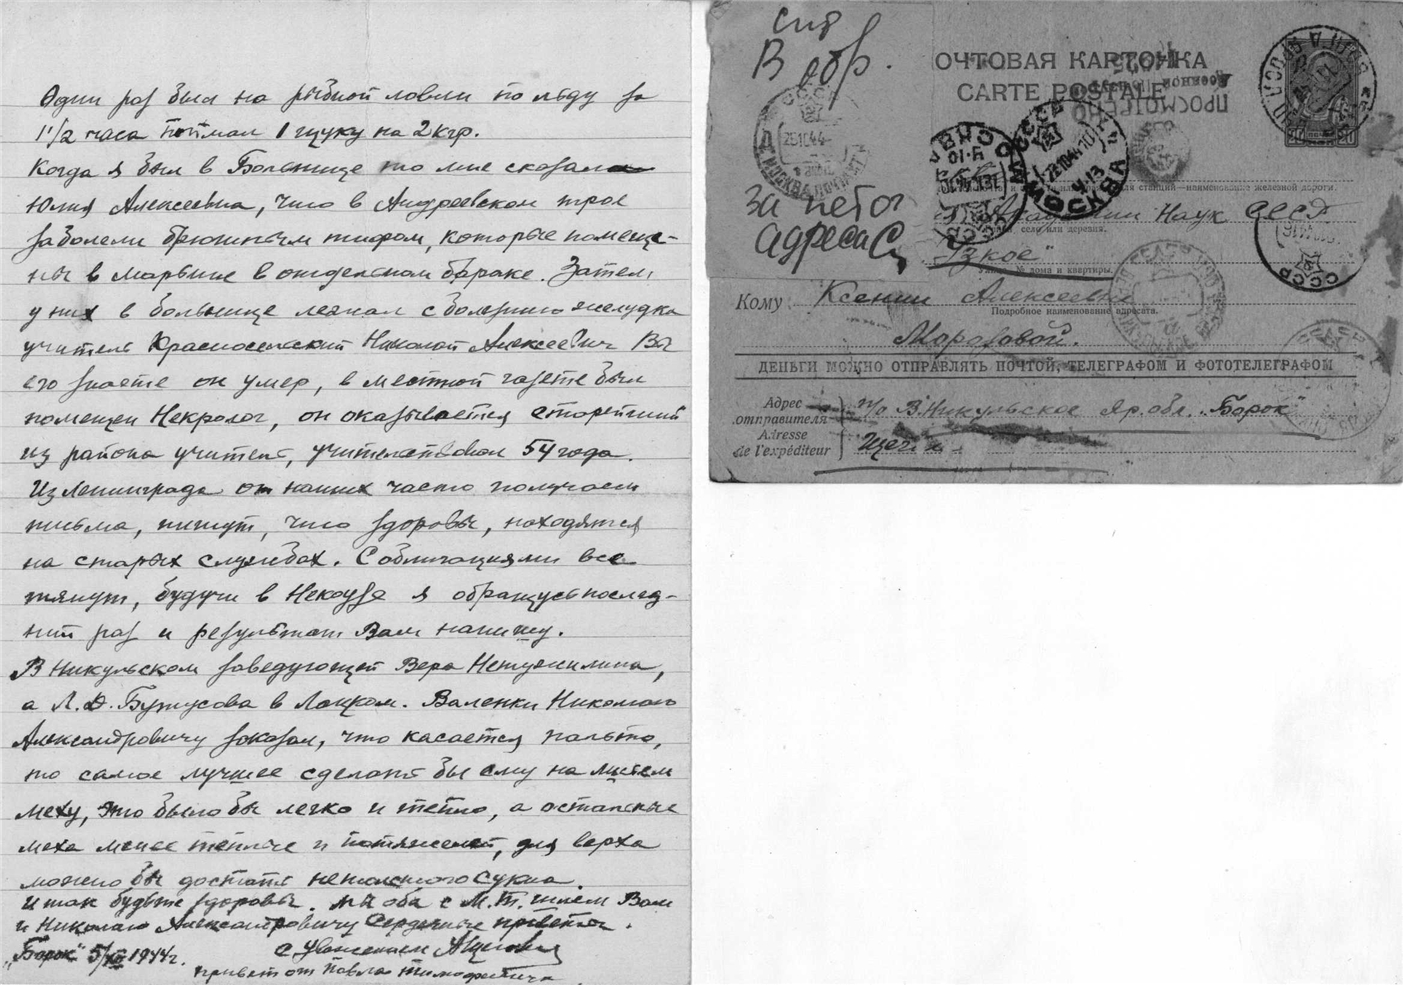 Один раз был на рыбной ловли по льду за
1 1/2 часа поймал 1 щуку на 2 кгр.
Когда я был в Больнице то мне сказала
Юлия Алексеевна, что в Андреевском трое
заболели брюшным тифом, которые помеще-
ны в Марьине в отдельном бараке. Затем
у них в больнице лежал с болезнью желудка
учитель Красносельский Николай Алексеевич Вы
его знаете он умер, в местной газете был
помещен Некролог, он оказывается старейший
из района учитель, учительствовал 54 года.
Из Ленинграда от наших часто получаем
письма, пишут, что здоровы, находятся
на старых службах. С облигациями все
тянут, будучи в Некоузе я обращусь послед-
ний раз и результат Вам напишу.
В Никульском заведующей Вера Нетужилина,
а Л. Д. Бутусова в Лацком. Валенки Николаю
Александровичу заказал, что касается пальто,
то самое лучшее сделать бы ему на лисьем
меху, это было бы легко и тепло, а остальные
меха менее теплые и потяжелей, для верха
можно бы достать сукна
Итак будьте здоровы. Мы оба с М. Т. шлем Вам
и Николаю Александровичу Сердечные приветы.
с Уважением АЩеголев
„Борок" 5/XII 1944 г.
привет от Павла Тимофеевича
В обр.
за петог
адресаС
ОЧТОВАЯ КАРТОЧКА
CARTE POSTALE
ПРОСМОТРЕНО
Военной
СССР
МОСКВА
Наук СССР
„Узкое"
№ дома и квартиры.
Кому Ксении Алексеевне
Подробное наименование адресата.
Морозовой.
ДЕНЬГИ МОЖНО ОТПРАВЛЯТЬ ПОЧТОЙ, ТЕЛЕГРАФОМ И ФОТОТЕЛЕГРАФОМ
Адрес п/о В. Никульское Яр. обл. „Борок"
отправителя
Adresse
de l'expéditeur